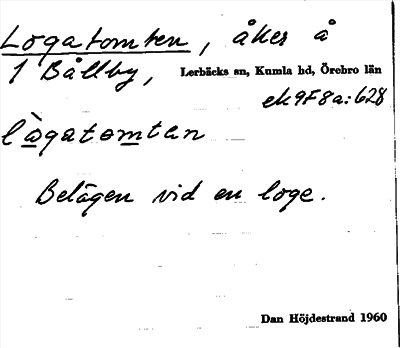 Logatomten, åker å
1 Bållby, Lerbäcks sn, Kumla hd, Örebro län
ek 9F8a:628
lògatomtan
Belägen vid en loge.
Dan Höjdestrand 1960